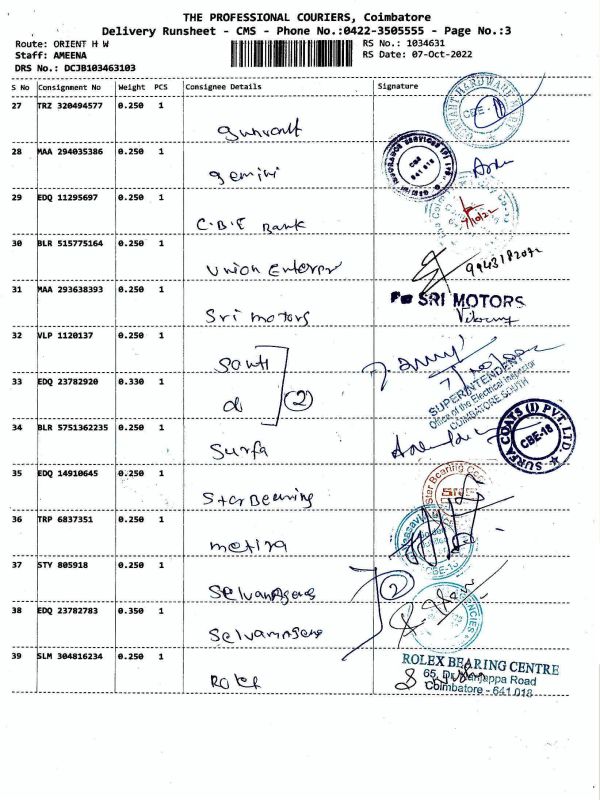 THE PROFESSIONAL COURIERS, Coimbatore
Delivery Runsheet - CMS - Phone No.:0422-3505555 - Page No.:3
Route: ORIENT H W RS No.: 1034631
Staff: AMEENA RS Date: 07-Oct-2022
DRS No.: DCJB103463103
S No Consignment No Weight PCS Consignee Details Signature
27 TRZ 320494577 0.250 1
CBE-1
gunvant
28 MAA 294035386 0.250 1
gemini
29 EDQ 11295697 0.250 1
C.B.E Bank
30 BLR 515775164 0.250 1
Union Enterpr
31 MAA 293638393 0.250 1
SRI MOTORS
Sri motors
32 VLP 1120137 0.250 1
33 EDQ 23782920 0.330 1
2
SUPERINTENDENT
Office of the Electrical Inspector
COIMBATORE SOUTH
34 BLR 5751362235 0.250 1
Surfa
SURFA COATS (I) PVT. LTD.
CBE-18
35 EDQ 14910645 0.250 1
Star Bearing
Star Bearing
36 TRP 6837351 0.250 1
CBE-18
37 STY 805918 0.250 1
2
38 EDQ 23782783 0.350 1
39 SLM 304816234 0.250 1
ROLEX BEARING CENTRE
65, Dr. Nanjappa Road
Coimbatore - 641 018